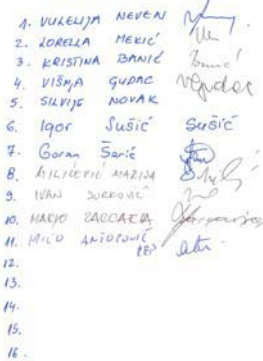 1. VUKELIJA NEVEN
2. LORELLA MEKIĆ
3. KRISTINA BANIĆ Banić
4. VIŠNJA GUDAC VGudac
5. SILVIJE NOVAK
6. Igor Sušić Sušić
7. Goran Šarić
8. MILIČEVIĆ MARIJA
9. IVAN JURKOVIĆ
10. MARIO ZACCARIA
11. MIĆO ANTONOVIĆ
12.
13.
14.
15.
16.